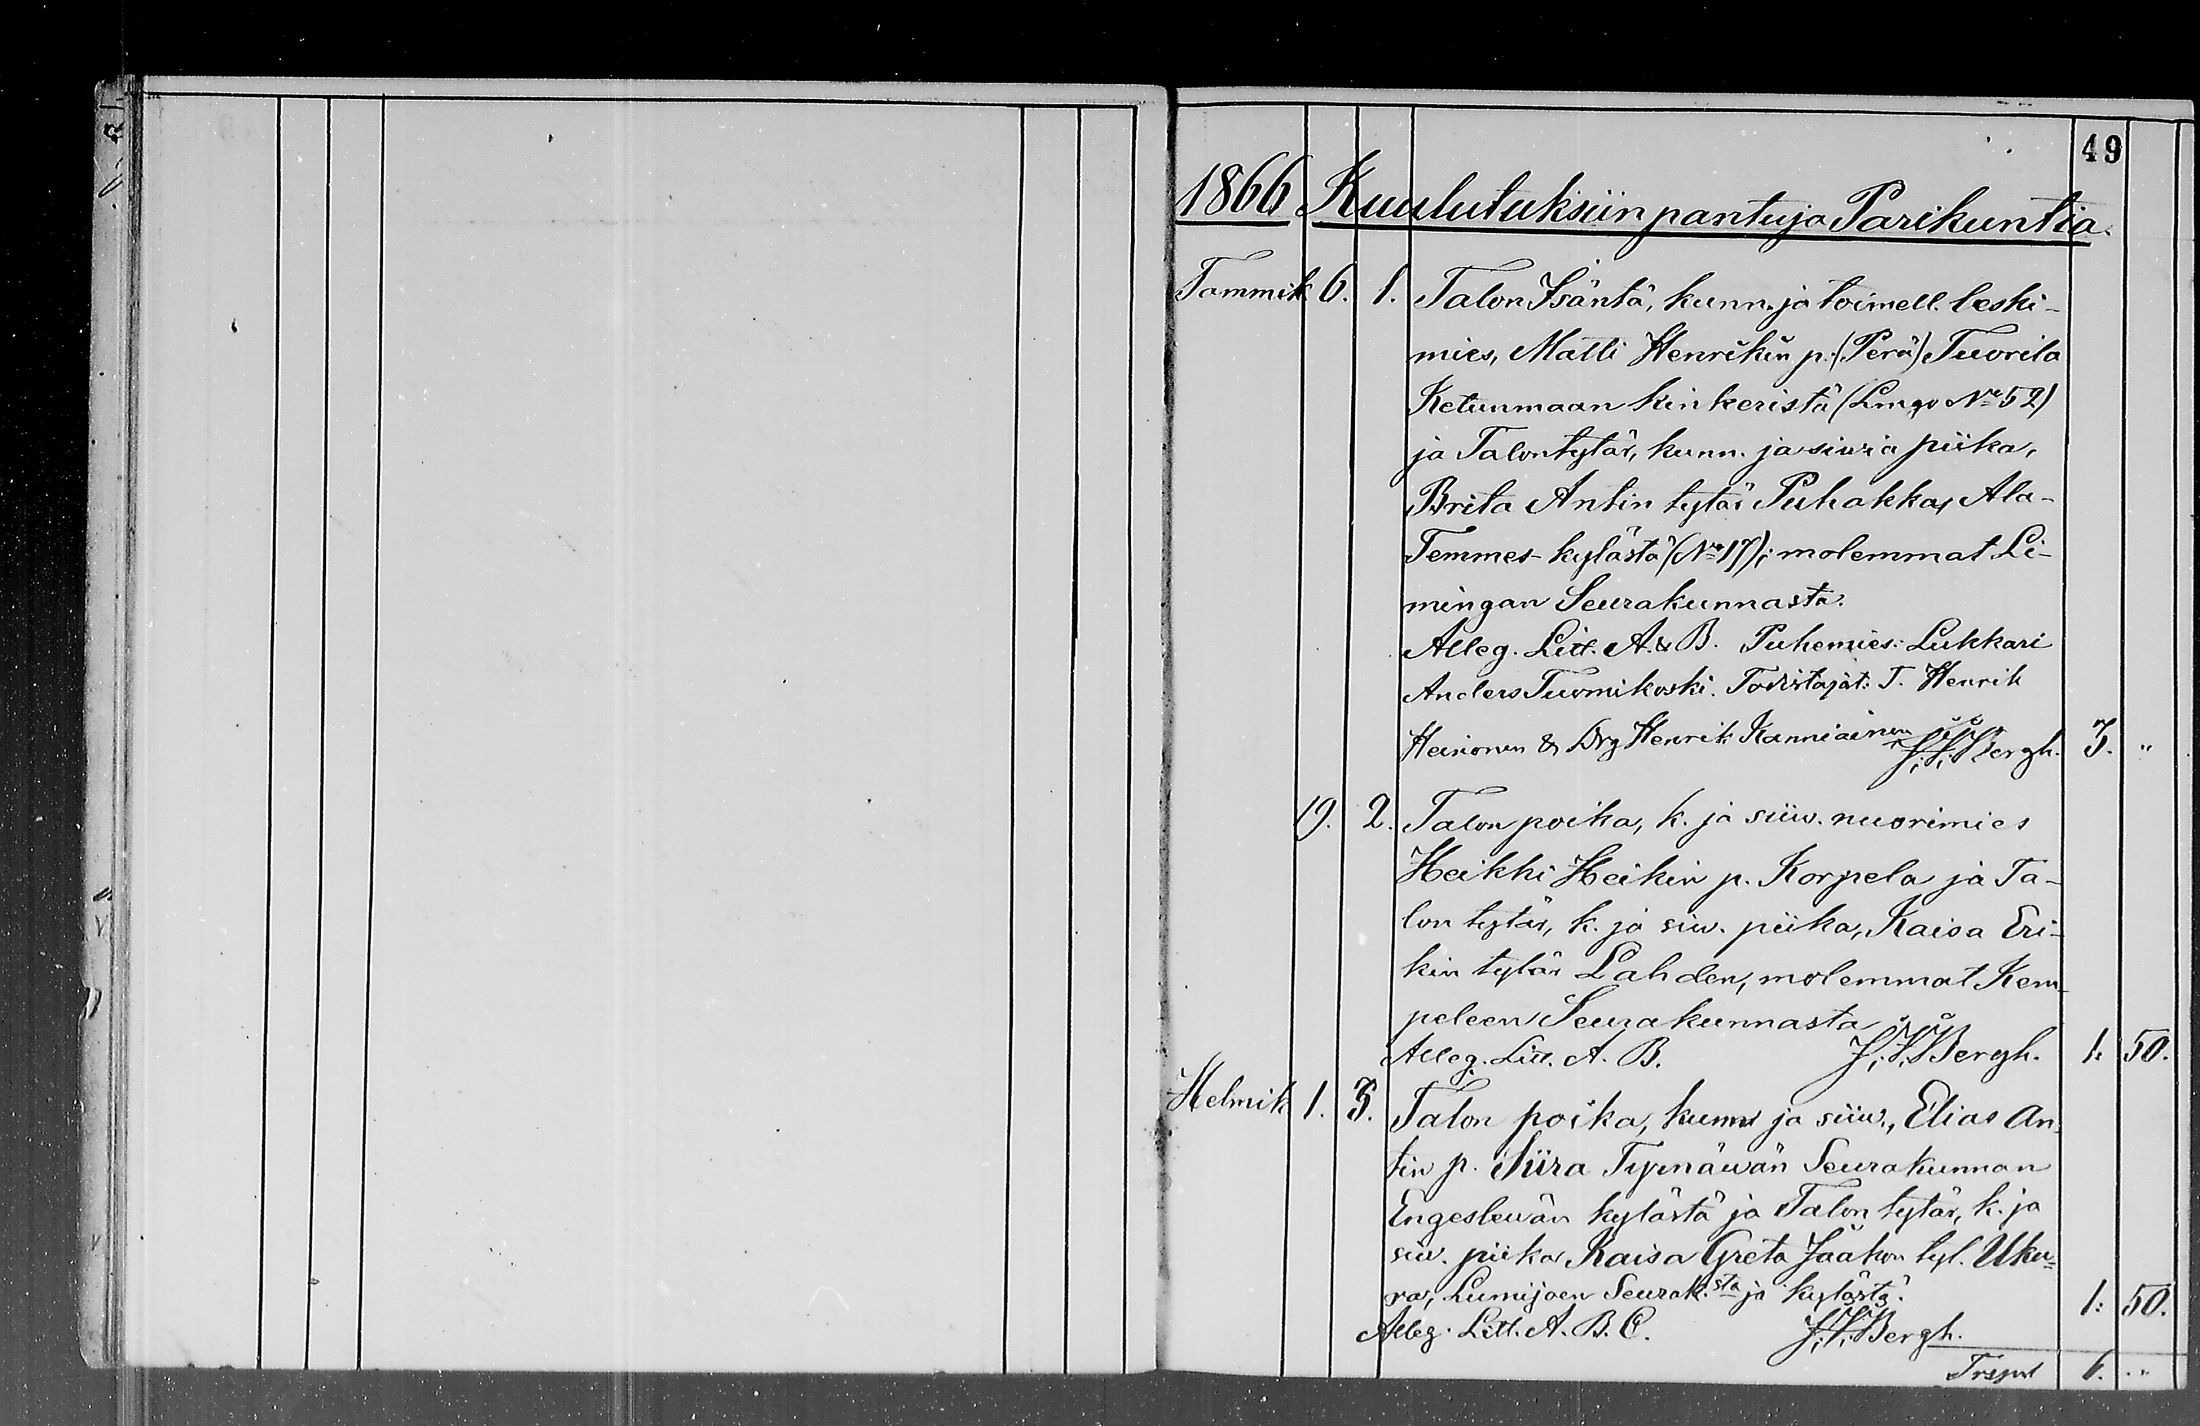 49
1866 Kuulutuksiin pantuja Parikuntia.
Tammik. 6. 1. Talon Isäntä, kunn. ja toimell. leski-
mies, Matti Henrikin p. (Perä) Tuorila
Ketunmaan kinkeristä (Lmgo No 52)
ja Talontytär, kunn. ja siwiä piika,
Brita Antin tytär Puhakka, Ala-
Temmes kylästä (No 17); molemmat Li-
mingan Seurakunnasta.
Alleg. Litt. A. & B. Puhemies: Lukkari
Anders Tuomikoski. Todistajat: T. Henrik
Heinonen & Drg Henrik Kanniainen Bergh. 3. "
19. 2. Talon poika, k. ja siiw. nuorimies
Heikki Heikin p. Korpela ja Ta-
lon tytär, k. ja siw. piika, Kaisa Eri-
kin tytär Lahden, molemmat Kem-
peleen Seurakunnasta
Alleg. Litt. A. B. Bergh. 1: 50.
Helmik 1. 3. Talon poika, kunn ja siiw., Elias An-
tin p. Siira Tyrnäwän Seurakunnan
Engeslewän kylästä ja Talon tytär, k. ja
siw. piika Kaisa Greta Jaakon tyt. Uku-
ra, Lumijoen Seurak.sta ja kylästä. 1: 50.
Alleg. Litt. A. B. C. Bergh.
Trspt 6. "